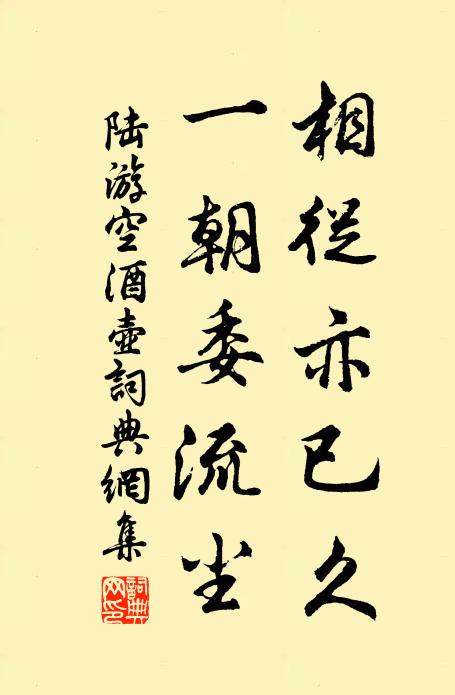 相從亦已久
一朝委流尘
陆游空酒壺詞典網集
詞典
网印